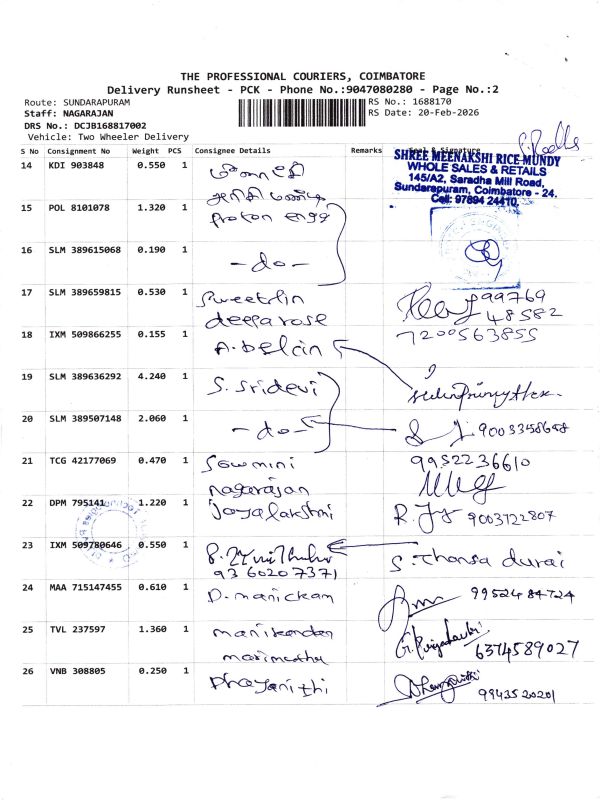 THE PROFESSIONAL COURIERS, COIMBATORE
Delivery Runsheet - PCK - Phone No.:9047080280 - Page No.:2
Route: SUNDARAPURAM
RS No.: 1688170
Staff: NAGARAJAN
RS Date: 20-Feb-2026
DRS No.: DCJB168817002
Vehicle: Two Wheeler Delivery
S No Consignment No Weight PCS Consignee Details Remarks Seal & Signature
SHREE MEENAKSHI RICE MUNDY
WHOLE SALES & RETAILS
145/A2, Saradha Mill Road,
Sundarapuram, Coimbatore - 24.
Cell: 97894 24410.
14 KDI 903848 0.550 1 மீனாட்சி
அரிசி மண்டி
15 POL 8101078 1.320 1 proton engg
16 SLM 389615068 0.190 1 -do-
17 SLM 389659815 0.530 1 Sweetlin 99769
deeparose 48582
7200563855
18 IXM 509866255 0.155 1 A. belcin
19 SLM 389636292 4.240 1 S. Sridevi
20 SLM 389507148 2.060 1 -do-
21 TCG 42177069 0.470 1 Sowmini 9952236610
nagarajan
22 DPM 795141 1.220 1 Jayalakshmi 9003722807
23 IXM 509780646 0.550 1 S. Thansa durai
9360207371
24 MAA 715147455 0.610 1 D. manickam 99524 84724
25 TVL 237597 1.360 1 manikandan 6374589027
marimuthu
26 VNB 308805 0.250 1 Dhayanithi 9943520201